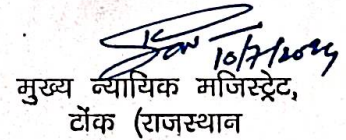 10/7/2024
मुख्य न्यायिक मजिस्ट्रेट,
टोंक (राजस्थान